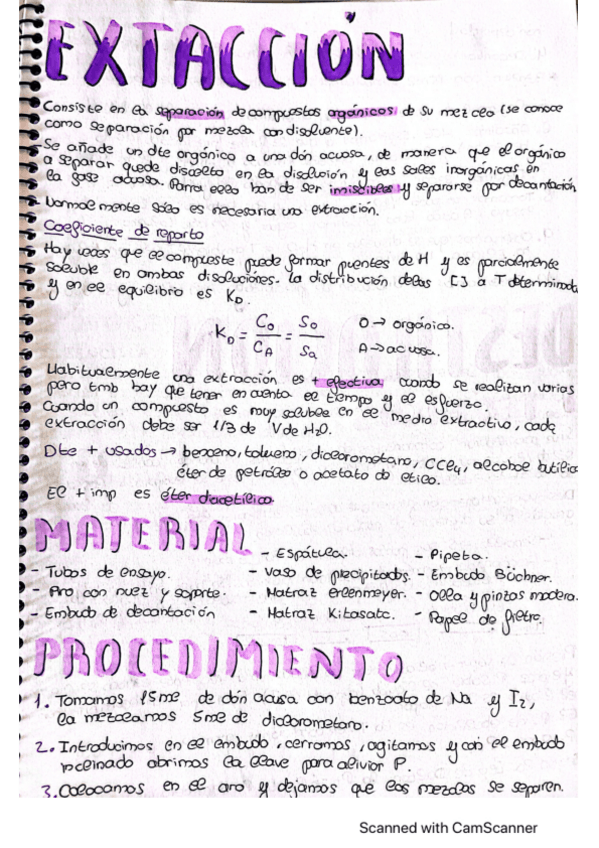 EXTACCIÓN
Consiste en la separación de compuestos orgánicos de su mezcla (se conoce
como separación por mezcla con disolvente).
- Se añade un dte orgánico a una dón acuosa, de manera que el orgánico
a separar quede disuelto en la disolución y las sales inorgánicas en
la fase acuosa. Para ello han de ser inmiscibles y separarse por decantación
- Normalmente sólo es necesaria una extracción.
Coeficiente de reparto
Hay veces que el compuesto puede formar puentes de H y es parcialmente
soluble en ambas disoluciones. La distribución de las [ ] a T determinada
y en el equilibrio es KD.
KD = CO/CA = SO/Sa
O → orgánico.
A → acuosa.
Habitualmente una extracción es + efectiva cuando se realizan varias
pero tmb hay que tener en cuenta el tiempo y el esfuerzo.
Cuando un compuesto es muy soluble en el medio extractivo, cada
extracción debe ser 1/3 de V de H2O.
Dte + usados → benceno, tolueno, diclorometano, CCl4, alcohol butílico
éter de petróleo o acetato de etilo.
El + imp es éter dietílico
MATERIAL
- Tubos de ensayo.
- Pro con nuez y soporte.
- Embudo de decantación
- Espátula.
- Vaso de precipitados.
- Matraz erlenmeyer.
- Matraz Kitasato.
- Pipeta.
- Embudo Büchner.
- Olla y pinzas madera.
- Papel de filtro.
PROCEDIMIENTO
1. Tomamos 15ml de dón acusa con benzoato de Na y I2,
la mezclamos 5ml de diclorometano.
2. Introducimos en el embudo, cerramos, agitamos y con el embudo
inclinado abrimos la llave para aliviar P.
3. Colocamos en el aro y dejamos que las mezclas se separen.
Scanned with CamScanner